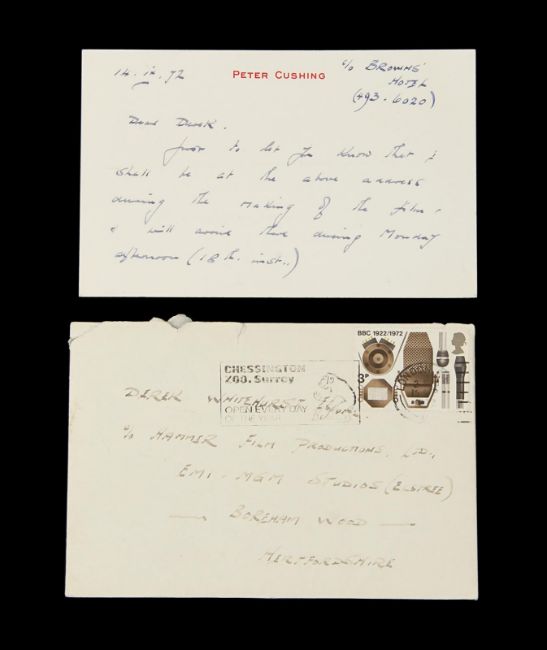 14. ix. 72
PETER CUSHING
c/o BROWNS'
HOTEL
(493-6020)
Dear Derek.
Just to let you know that I
shall be at the above address
during the making of the film,
& will arrive there during Monday
afternoon (18th. inst..)
BBC 1922/1972
3P
CHESSINGTON
ZOO. Surrey
OPEN EVERY DAY
OF THE YEAR
DEREK WHITEHURST
c/o HAMMER FILM PRODUCTIONS, LTD.,
EMI-MGM STUDIOS (ELSTREE)
— BOREHAM WOOD —
HERTFORDSHIRE